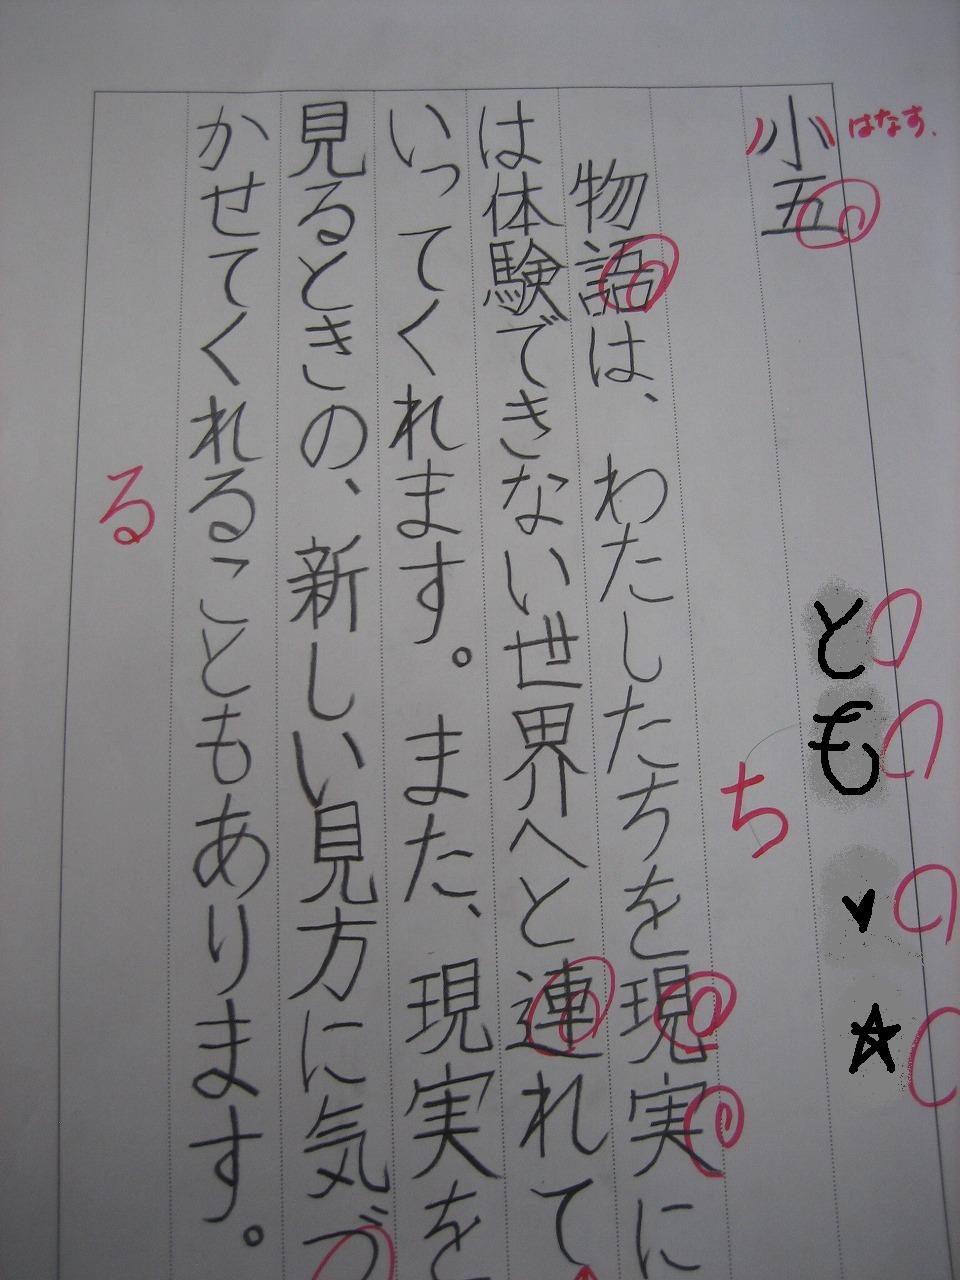 はなす、
小五
とも
ち
物語は、わたしたちを現実に
は体験できない世界へと連れて
いってくれます。また、現実を
見るときの、新しい見方に気づ
かせてくれることもあります。
る